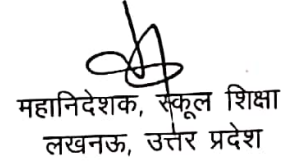 महानिदेशक, स्कूल शिक्षा
लखनऊ, उत्तर प्रदेश